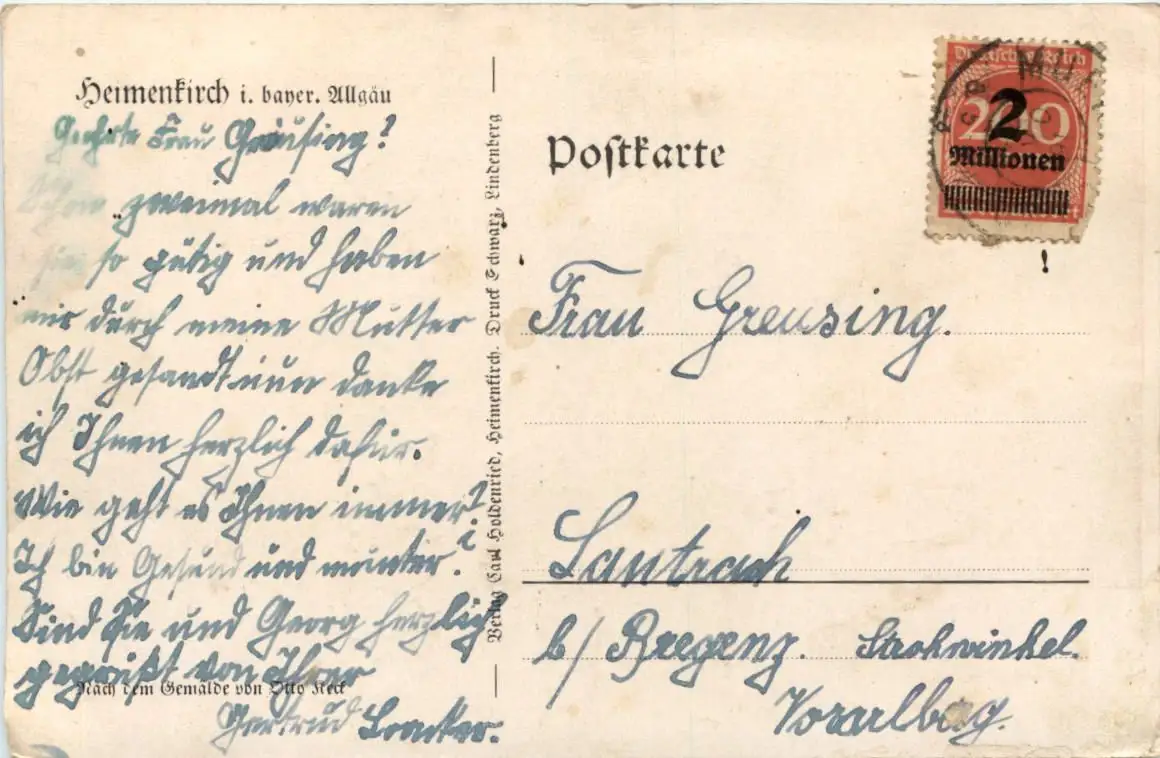 Heimenkirch i. bayer. Allgäu
Geehrte Frau Gräusing!
Schon zweimal waren
Sie so gütig und haben
mir durch meine Mutter
Obst gesandt nun danke
ich Ihnen herzlich dafür.
Wie geht es Ihnen immer?
Ich bin Gesund und munter.
Sind Sie und Georg herzlich
gegrüßt von Ihrer
Nach dem Gemälde von Otto Keck
Gertrud Loacker.
Verlag Carl Holdenried, Heimenkirch. Druck Schwarz, Lindenberg
Postkarte
Deutsches Reich
200
2
Millionen
Frau Greusing.
Lautrach
b/ Bregenz. Strohwinkel.
Vorarlberg.